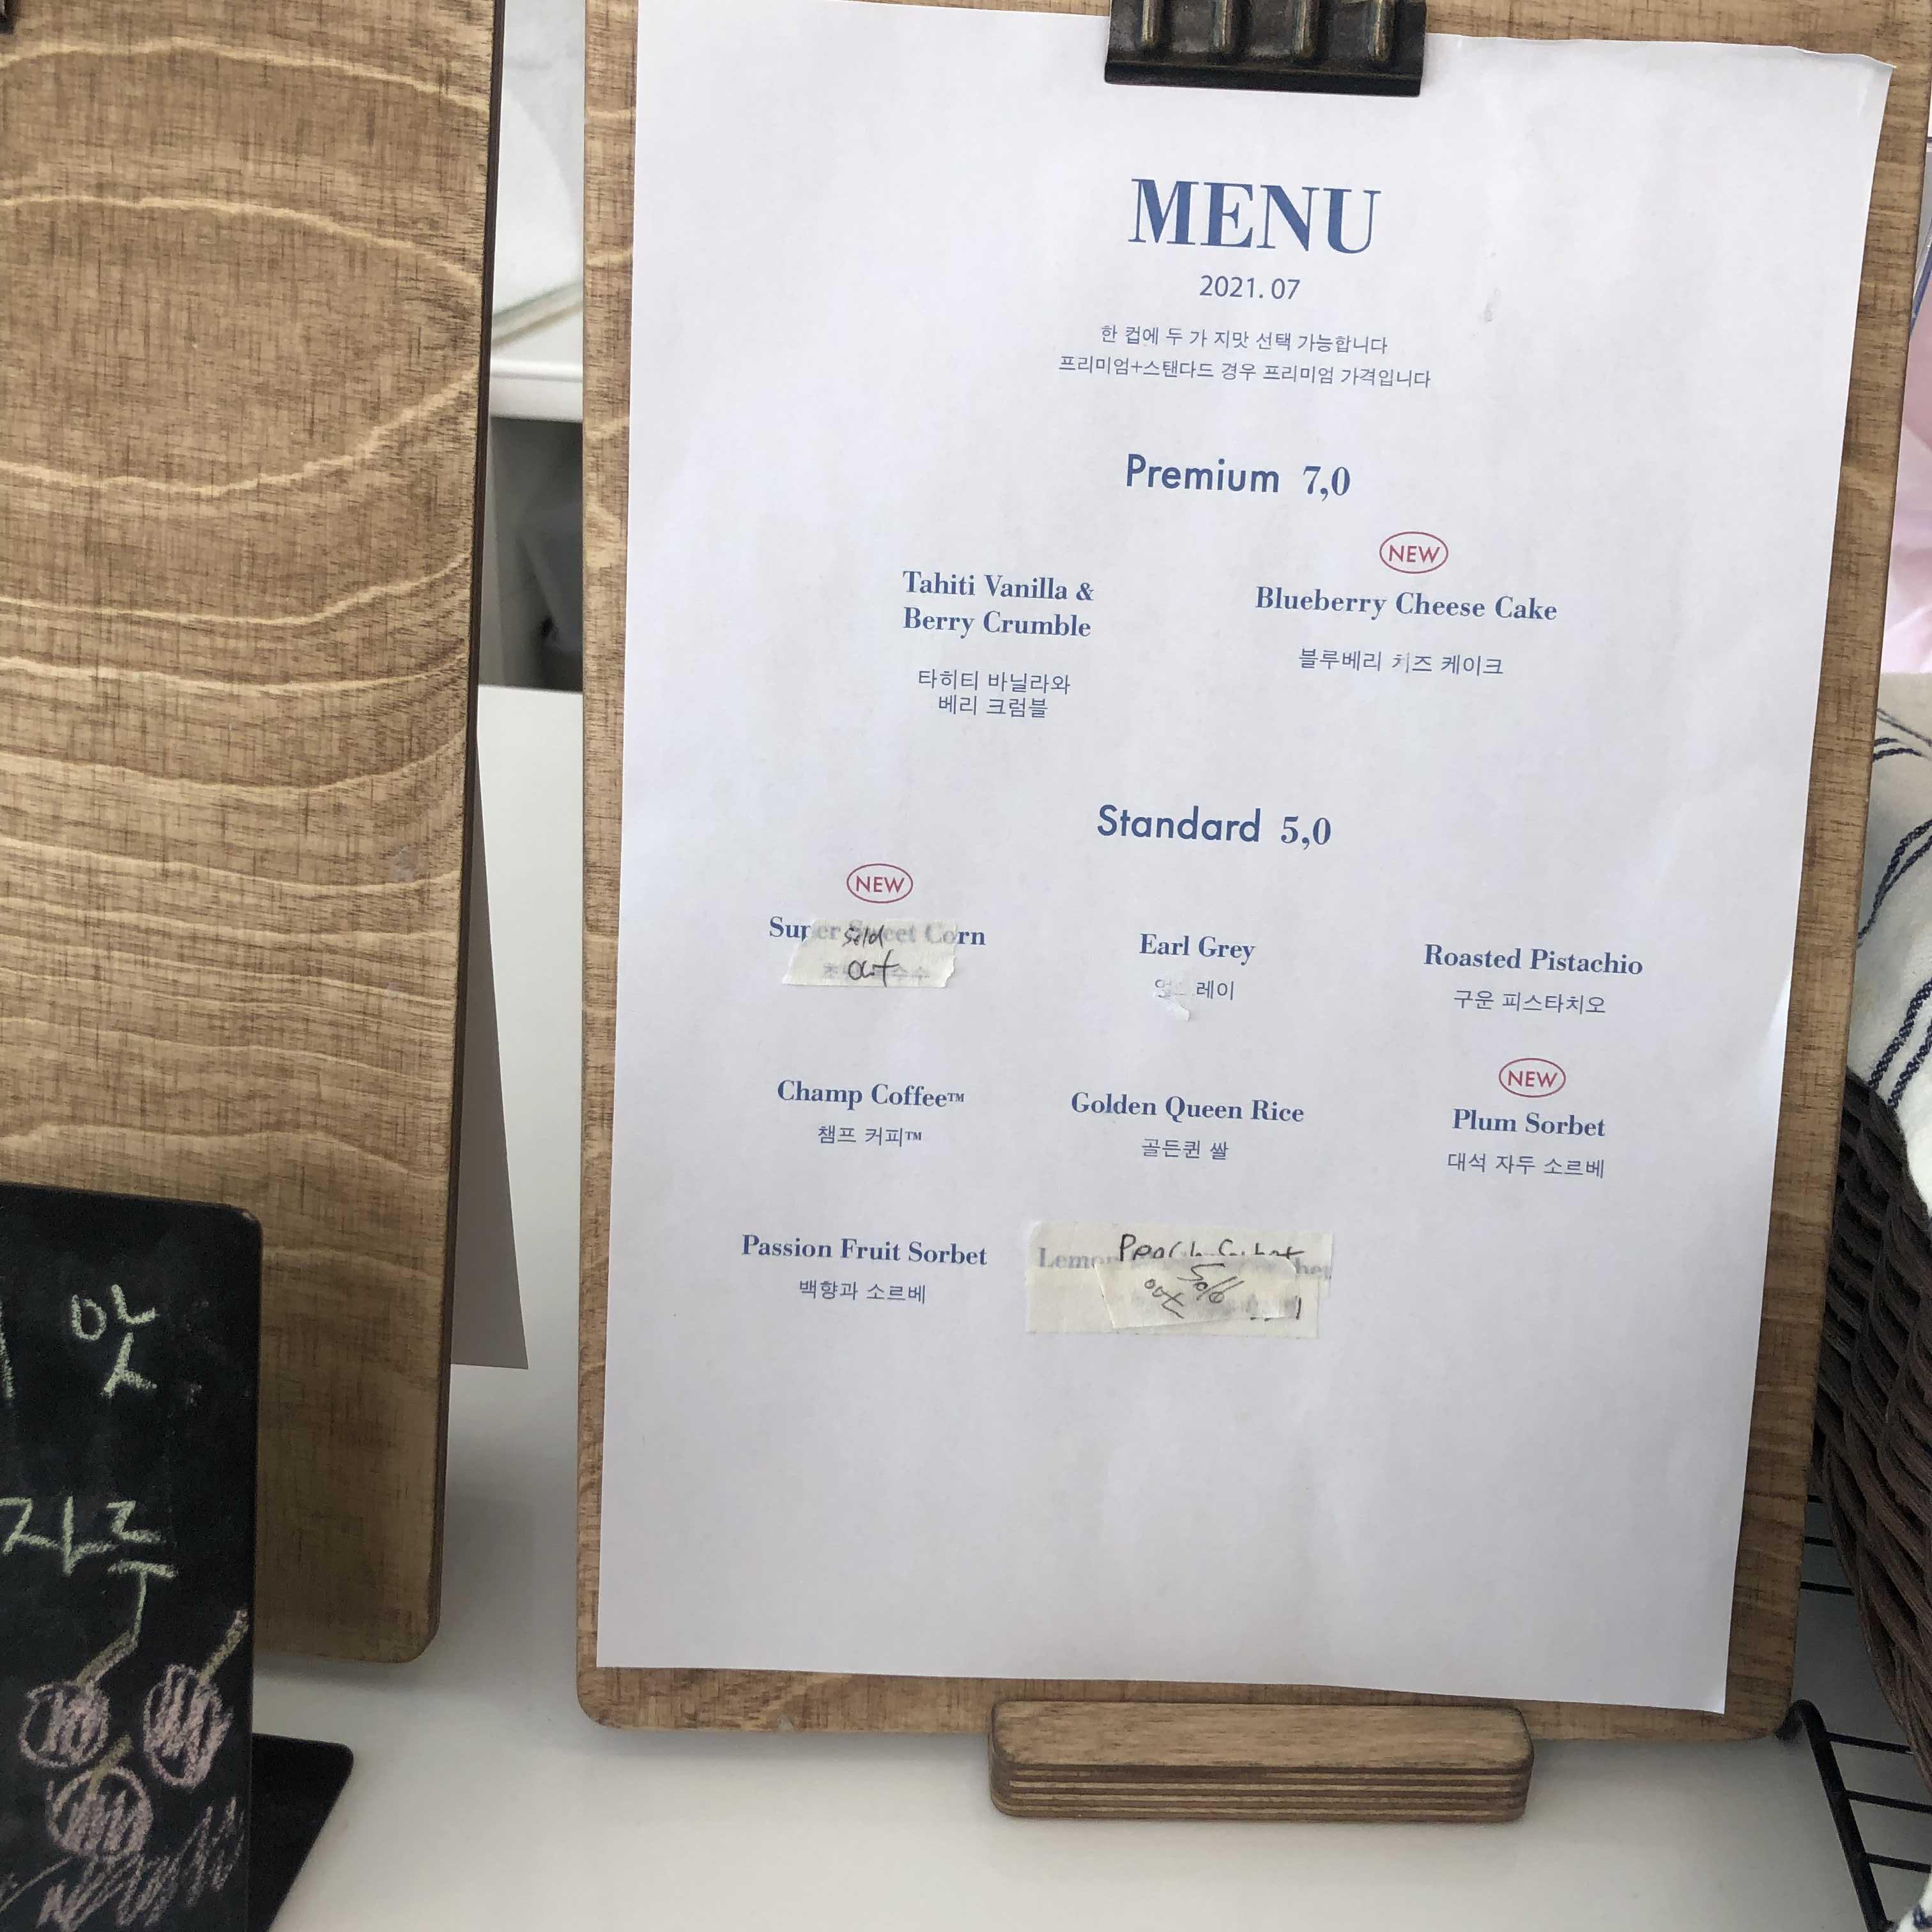 MENU
2021. 07
한 컵에 두 가 지맛 선택 가능합니다
프리미엄+스탠다드 경우 프리미엄 가격입니다
Premium 7,0
Tahiti Vanilla &
Berry Crumble
타히티 바닐라와
베리 크럼블
NEW
Blueberry Cheese Cake
블루베리 치즈 케이크
Standard 5,0
NEW
Super Sweet Corn
Sold
out
Earl Grey
레이
Roasted Pistachio
구운 피스타치오
Champ Coffee™
챔프 커피™
Golden Queen Rice
골든퀸 쌀
NEW
Plum Sorbet
대석 자두 소르베
Passion Fruit Sorbet
백향과 소르베
Peach Sorbet
Lemon
Sold
out
맛
자두